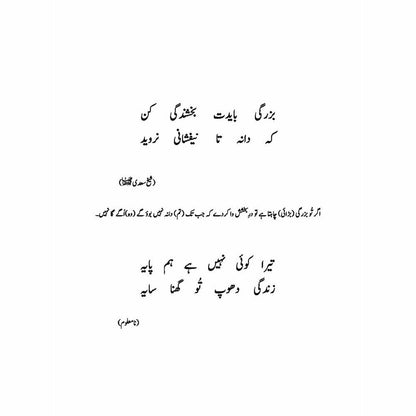 بزرگی بایدت بخشندگی کن
کہ دانہ تا نیفشانی نروید
(شیخ سعدیؒ)
اگر تُو بزرگی (بڑائی) چاہتا ہے تو درِ بخشش وا کر دے کہ جب تک (تم) دانہ نہیں بوؤ گے (وہ) اُگے گا نہیں۔
تیرا کوئی نہیں ہے ہم پایہ
زندگی دھوپ تُو گھنا سایہ
(نامعلوم)